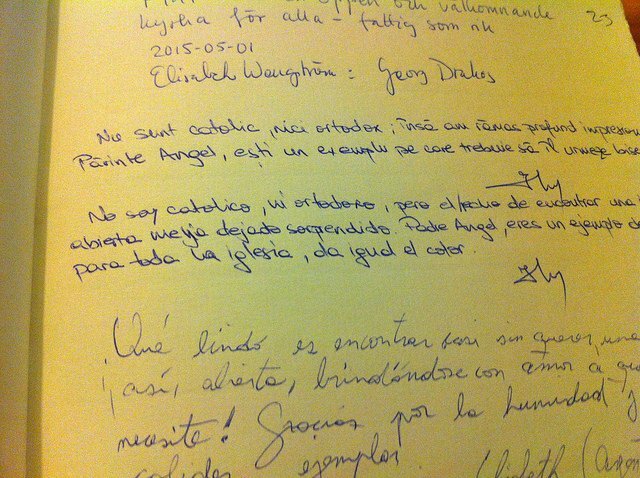 öppen och välkomnande
kyrka för alla - fattig som rik
23
2015-05-01
Elisabeth Wengström: Georg Drakos
Nu sunt catolic, nici ortodox; însă am rămas profund impresion
Părinte Angel, ești un exemplu pe care trebuie să îl urmeze
No soy catolico, ni ortodoxo, pero el hecho de encontrar una
abierta me ha dejado sorprendido. Padre Angel, eres un ejemplo de
para toda la iglesia, da igual el color.
¡Qué lindo es encontrar casi sin querer, una
así, abierta, brindándose con amor a
necesite! Gracias por la humildad y
ejemplos.